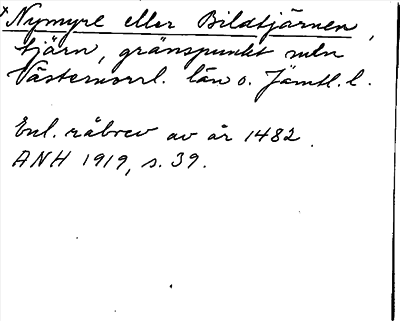 × Nymyre eller Bildtjärnen,
tjärn, gränspunkt meln
Västernorrl. län o. Jämtl. l.
Enl. råbrev av år 1482.
ANH 1919, s. 39.